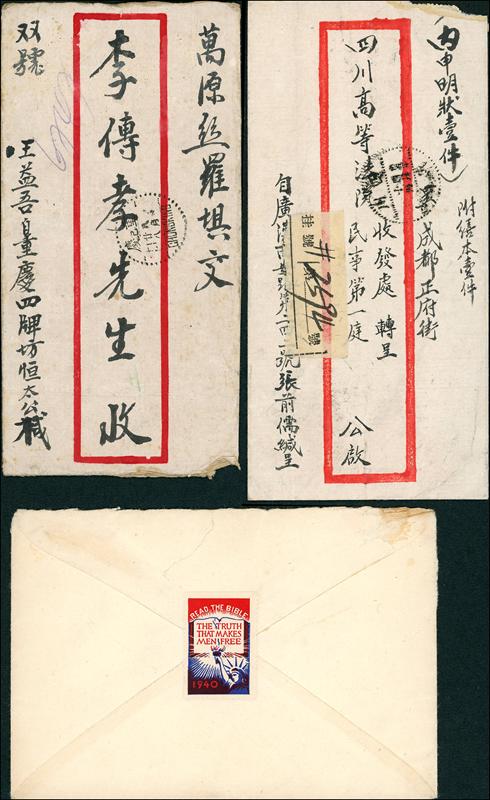 萬源絲羅壩交
李傳孝先生 收
双號
王益吾自重慶四牌坊恒太公緘
丙申明狀壹件
附繕本壹件
成都正府街
四川高等法院 收發處 轉呈
民事第一庭
公啟
張前儒緘呈
掛號
#2594
號
READ THE BIBLE
THE TRUTH
THAT MAKES
MEN FREE
1940